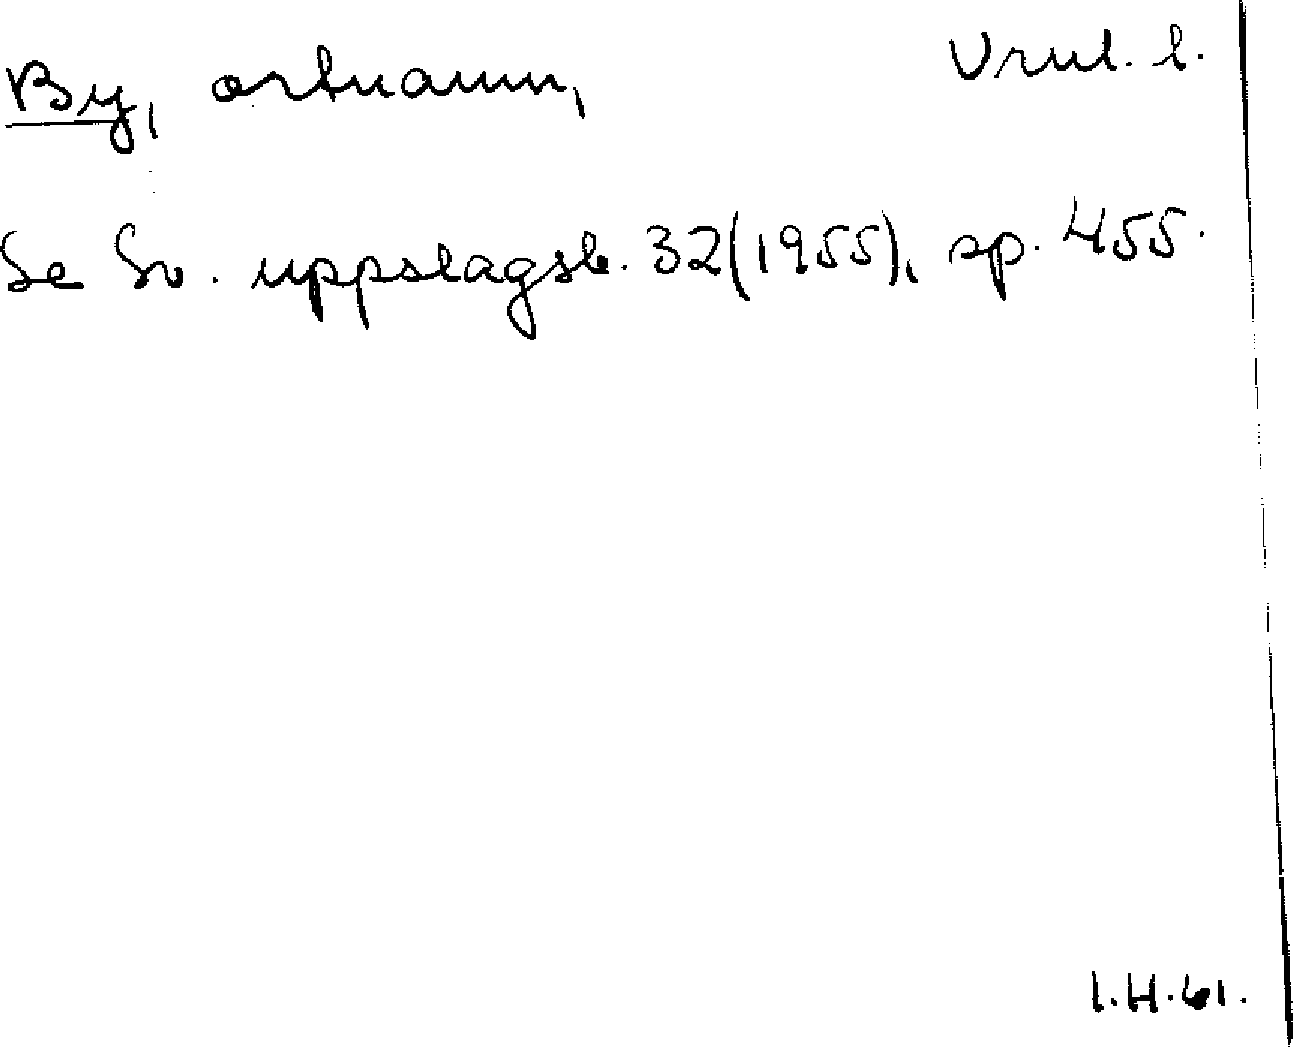 By, ortnamn, Vrml. l.
Se Sv. uppslagsb. 32(1955), sp. 455.
I.H.61.